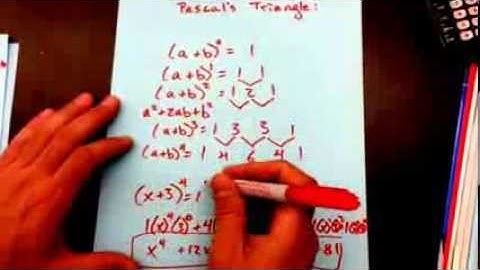 Pascal's Triangle:
(a+b)⁰ = 1
(a+b)¹ = 1 1
(a+b)² = 1 2 1
a²+2ab+b²
(a+b)³ = 1 3 3 1
(a+b)⁴ = 1 4 6 4 1
(x+3)⁴ = 1
1(x)⁴(3)⁰ + 4
x⁴ + 12x 81